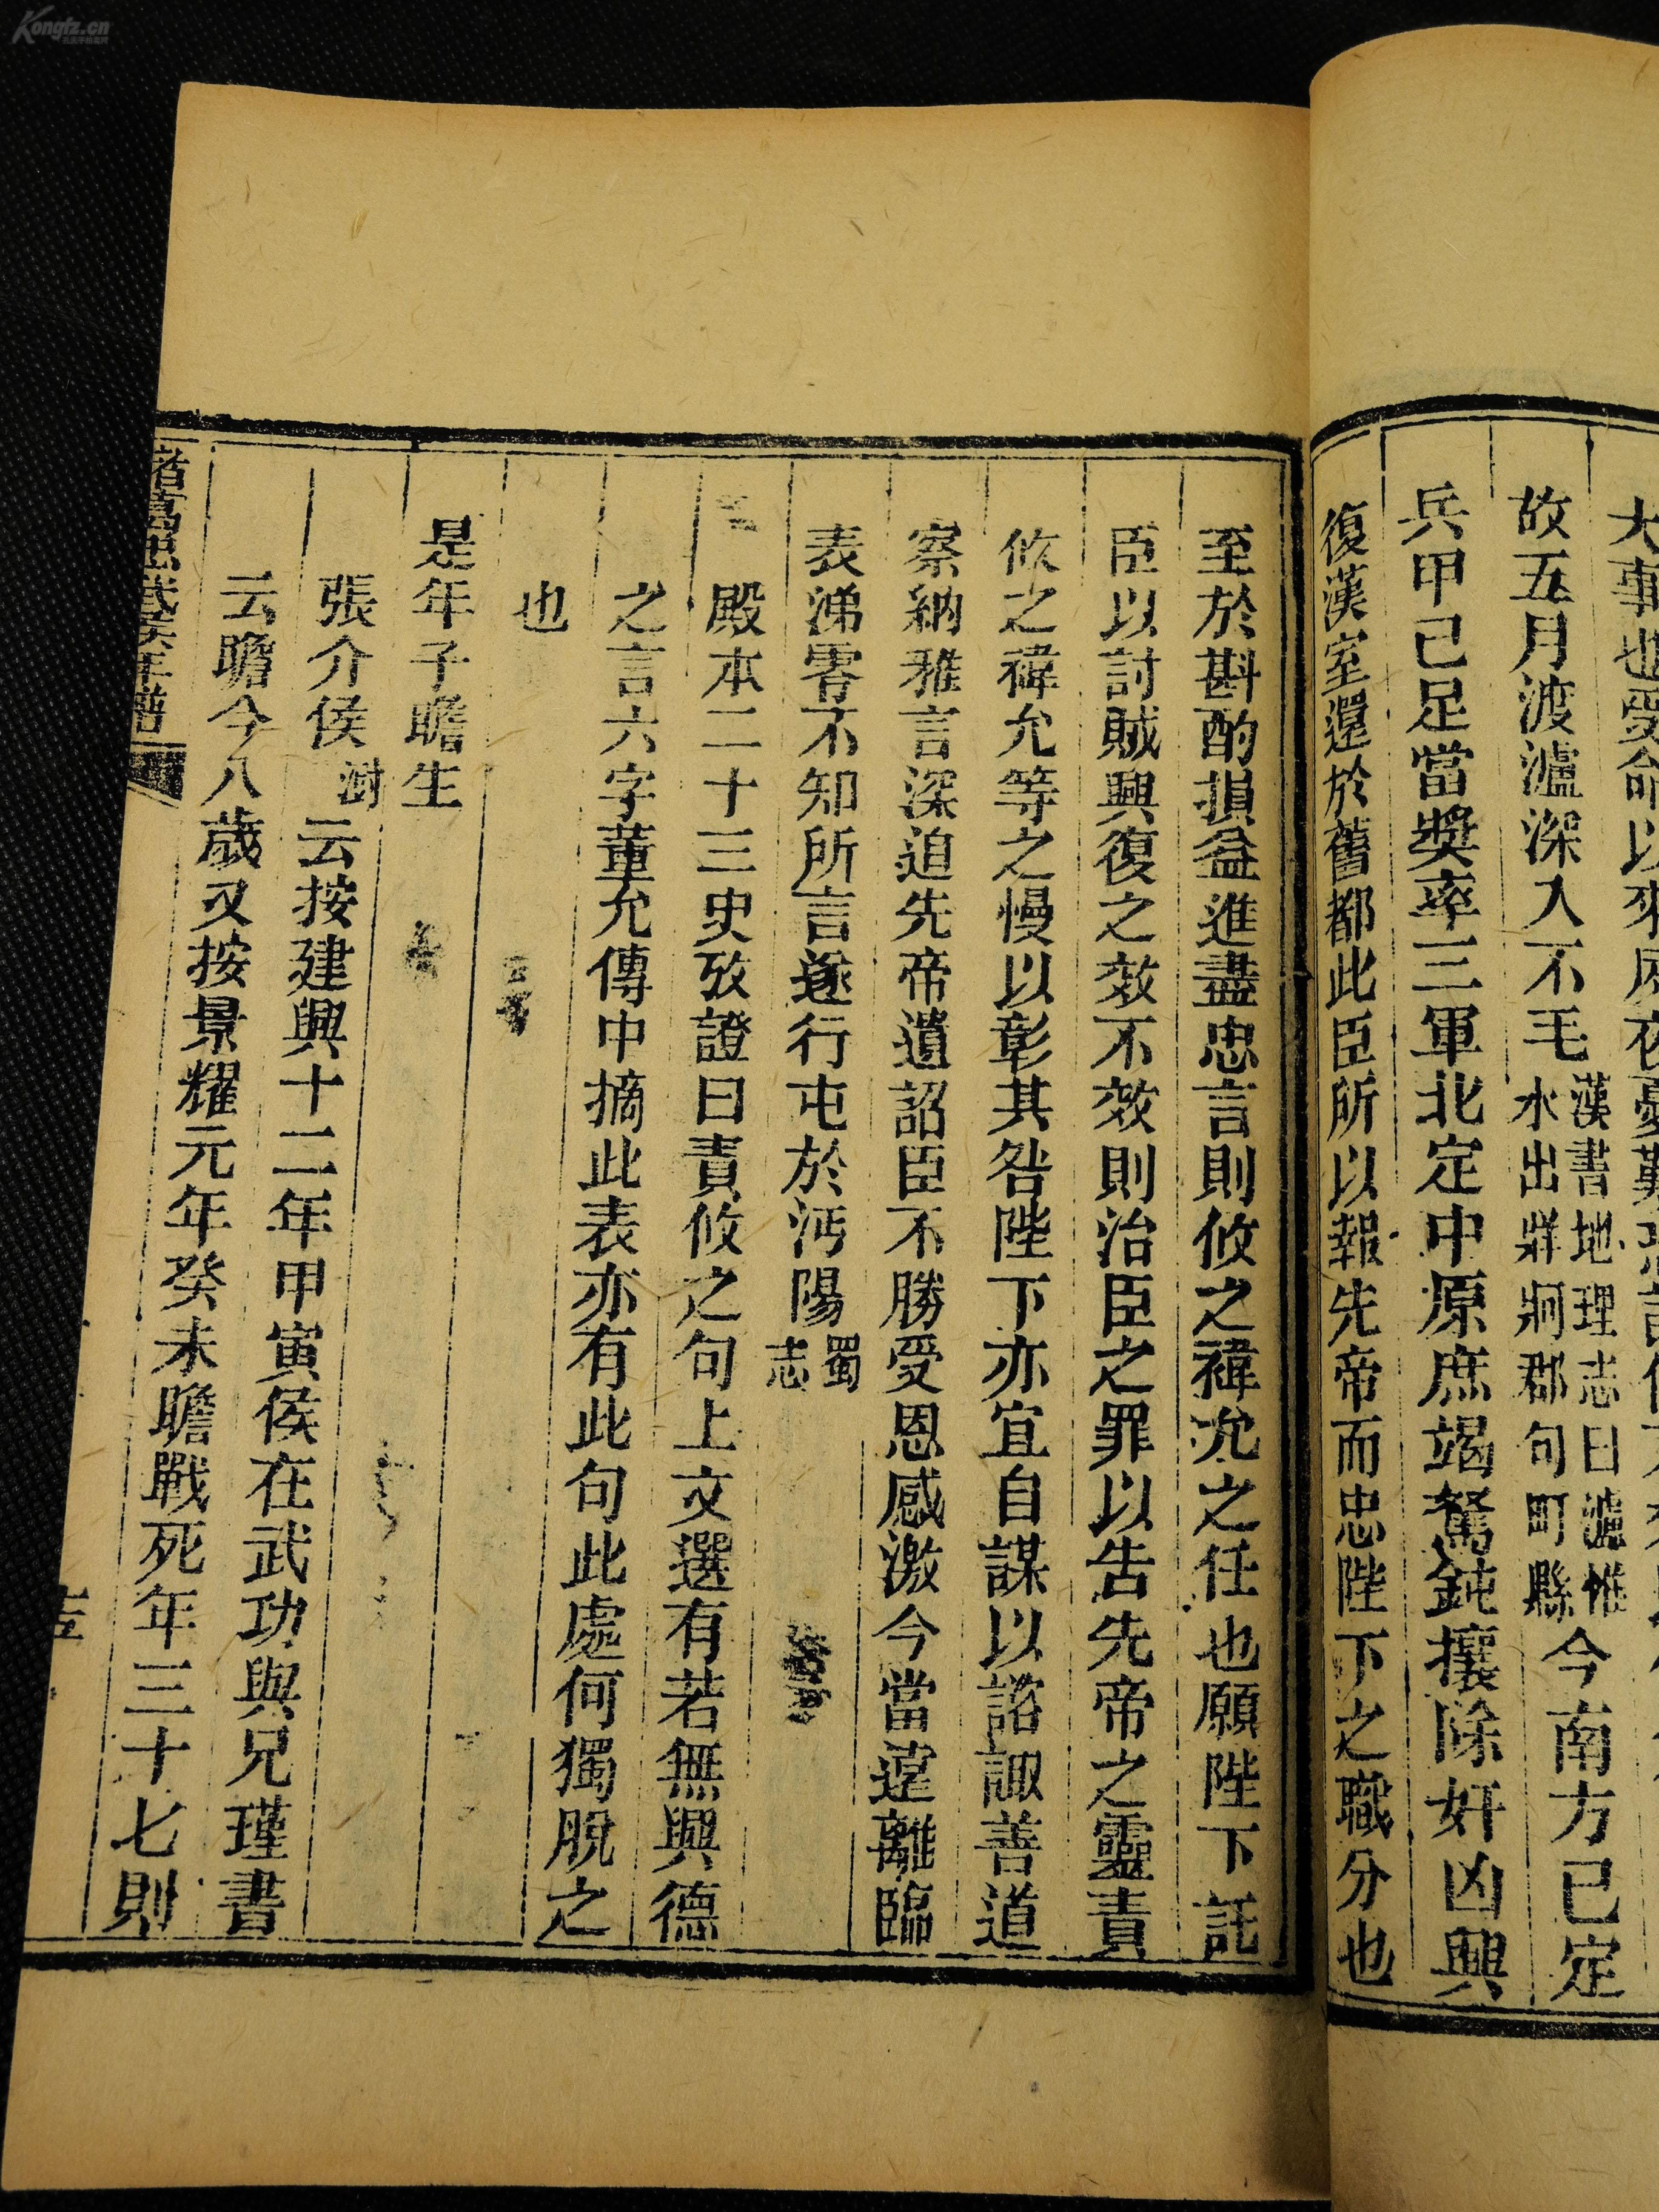 大事也受命以來夙夜憂
故五月渡瀘深入不毛漢書地理志曰瀘惟水出牂牁郡句町縣今南方已定
兵甲已足當獎率三軍北定中原庶竭駑鈍攘除奸凶興
復漢室還於舊都此臣所以報先帝而忠陛下之職分也
至於斟酌損益進盡忠言則攸之禕允之任也願陛下託
臣以討賊興復之效不效則治臣之罪以告先帝之靈責
攸之禕允等之慢以彰其咎陛下亦宜自謀以諮諏善道
察納雅言深追先帝遺詔臣不勝受恩感激今當遠離臨
表涕零不知所言遂行屯於沔陽蜀志
殿本二十三史攷證曰責攸之句上文選有若無興德
之言六字董允傳中摘此表亦有此句此處何獨脫之
也
是年子瞻生
張介侯澍云按建興十二年甲寅侯在武功與兄瑾書
云瞻今八歲又按景耀元年癸未瞻戰死年三十七則
諸葛忠武侯年譜
Kongfz.cn